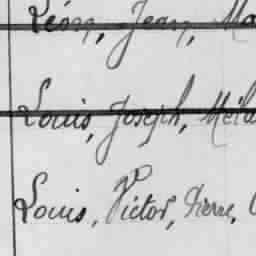 Léon, Jean, Ma
Louis, Joseph, Méla
Louis, Victor, Pierre,